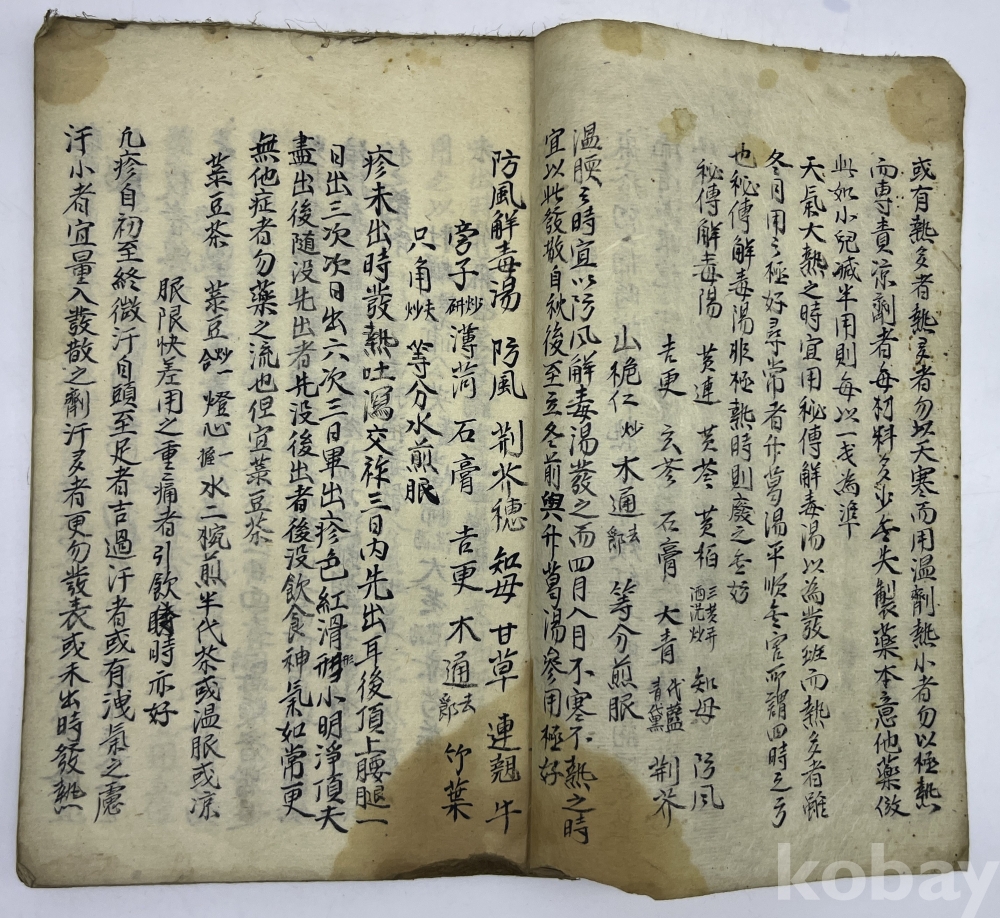 或有熱多者熱多者勿以天寒而用温劑熱小者勿以極熱
而專責凉劑者每材料多少無失製藥本意他藥倣
此如小兒減半用則每以一戔為準
天氣大熱之時宜用秘傳解毒湯以為發班而熱多者雖
冬月用之極好尋常者升葛湯平順無害所謂四時之亏
也秘傳解毒陽非極熱時則廢之無妨
秘傳解毒陽 黃連 黃芩 黃栢 三莖幷酒洗炒 知母 防風
吉更 玄參 石膏 大青 代藍青黛 荆芥
山梔仁炒 木通去節 等分煎服
温腰之時宜以防風解毒湯發之而四月八月不寒不熱之時
宜以此發散自秋後至立冬前與升葛湯參用極好
防風解毒湯 防風 荆芥穗 知母 甘草 連翹 牛
旁子炒研 薄荷 石膏 吉更 木通去節 竹葉
只角夫炒 等分水煎服
疹未出時發熱吐瀉交裶三日內先出耳後頂上腰腿一
日出三次次日出六次三日畢出疹色紅滑形小明淨頂夫
盡出後随没先出者先没後出者後没飮食神氣如常更
無他症者勿藥之流也但宜菉豆茶
菉豆茶 菉豆炒一合 燈心一握 水二椀煎半代茶或温服或凉
服限快差用之重痛者引飮時時亦好
凢疹自初至終微汗自頭至足者吉過汗者或有洩氣之慮
汗小者宜量入發散之劑汗多者更勿發表或未出時發熱
kobay